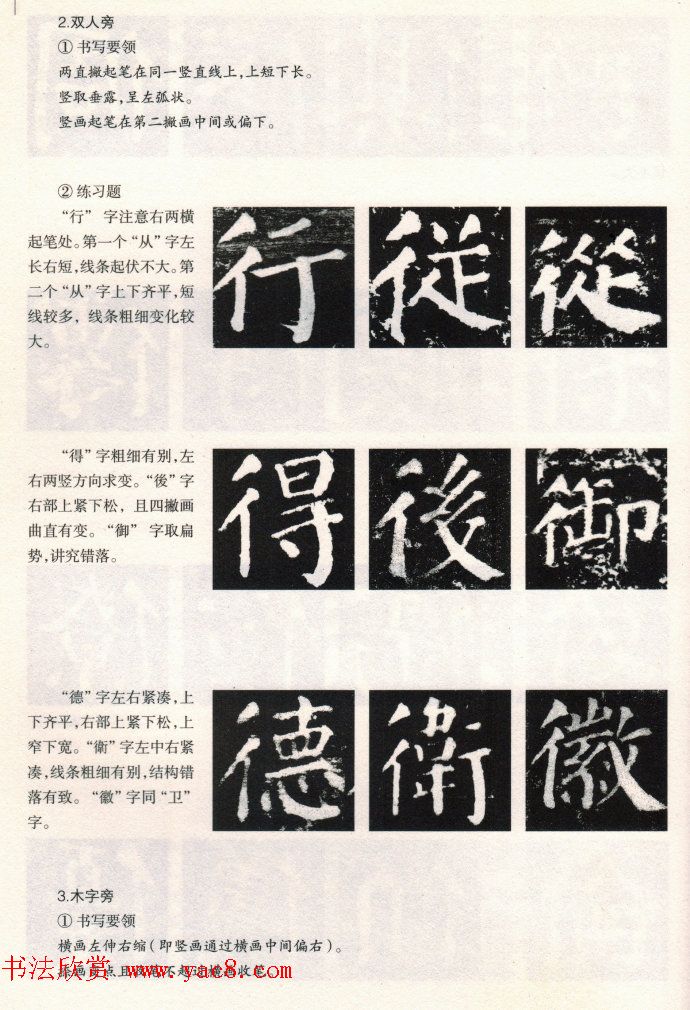 2.双人旁
① 书写要领
两直撇起笔在同一竖直线上,上短下长。
竖取垂露,呈左弧状。
竖画起笔在第二撇画中间或偏下。
② 练习题
“行” 字注意右两横
起笔处。第一个“从”字左
长右短,线条起伏不大。第
二个“从”字上下齐平,短
线较多，线条粗细变化较
大。
行 従 從
“得”字粗细有别,左
右两竖方向求变。“後”字
右部上紧下松，且四撇画
曲直有变。“御” 字取扁
势,讲究错落。
得 後 御
“德”字左右紧凑,上
下齐平,右部上紧下松,上
窄下宽。“衛”字左中右紧
凑,线条粗细有别,结构错
落有致。“徽”字同“卫”
字。
德 衛 徽
3.木字旁
① 书写要领
横画左伸右缩(即竖画通过横画中间偏右)。
书法欣赏 www.yac8.com